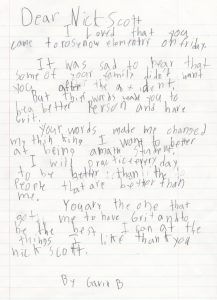 Dear Nick Scott
I loved that you
came to rosenow elementry on friday.
It was sad to hear that
some of your family didn't want
you after the
But words made you to
be a better Person and have
Grit.
Your words made me changed
my thinking I want to better
at being a math student.
I will practice every day
to be better than the
People that are better than
me.
You are the one that
got me to have Grit and to
be the best I can at the
things I like thank you
nick scott.
By Gavin B